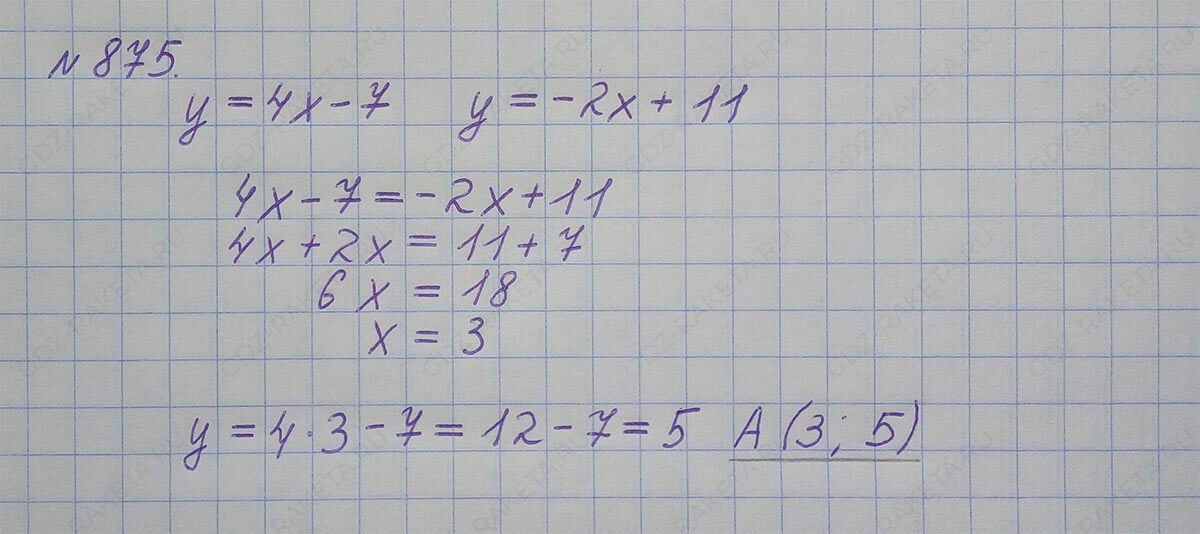 № 875.
y = 4x - 7 y = -2x + 11
4x - 7 = -2x + 11
4x + 2x = 11 + 7
6x = 18
x = 3
y = 4 · 3 - 7 = 12 - 7 = 5 A (3; 5)